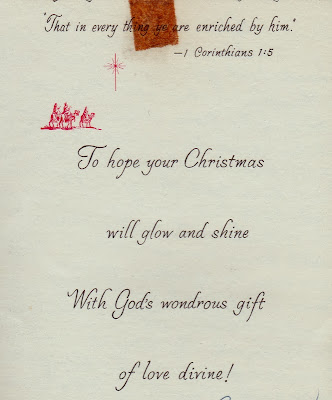 "That in every thing ye are enriched by him."
—1 Corinthians 1:5
To hope your Christmas
will glow and shine
With God's wondrous gift
of love divine!